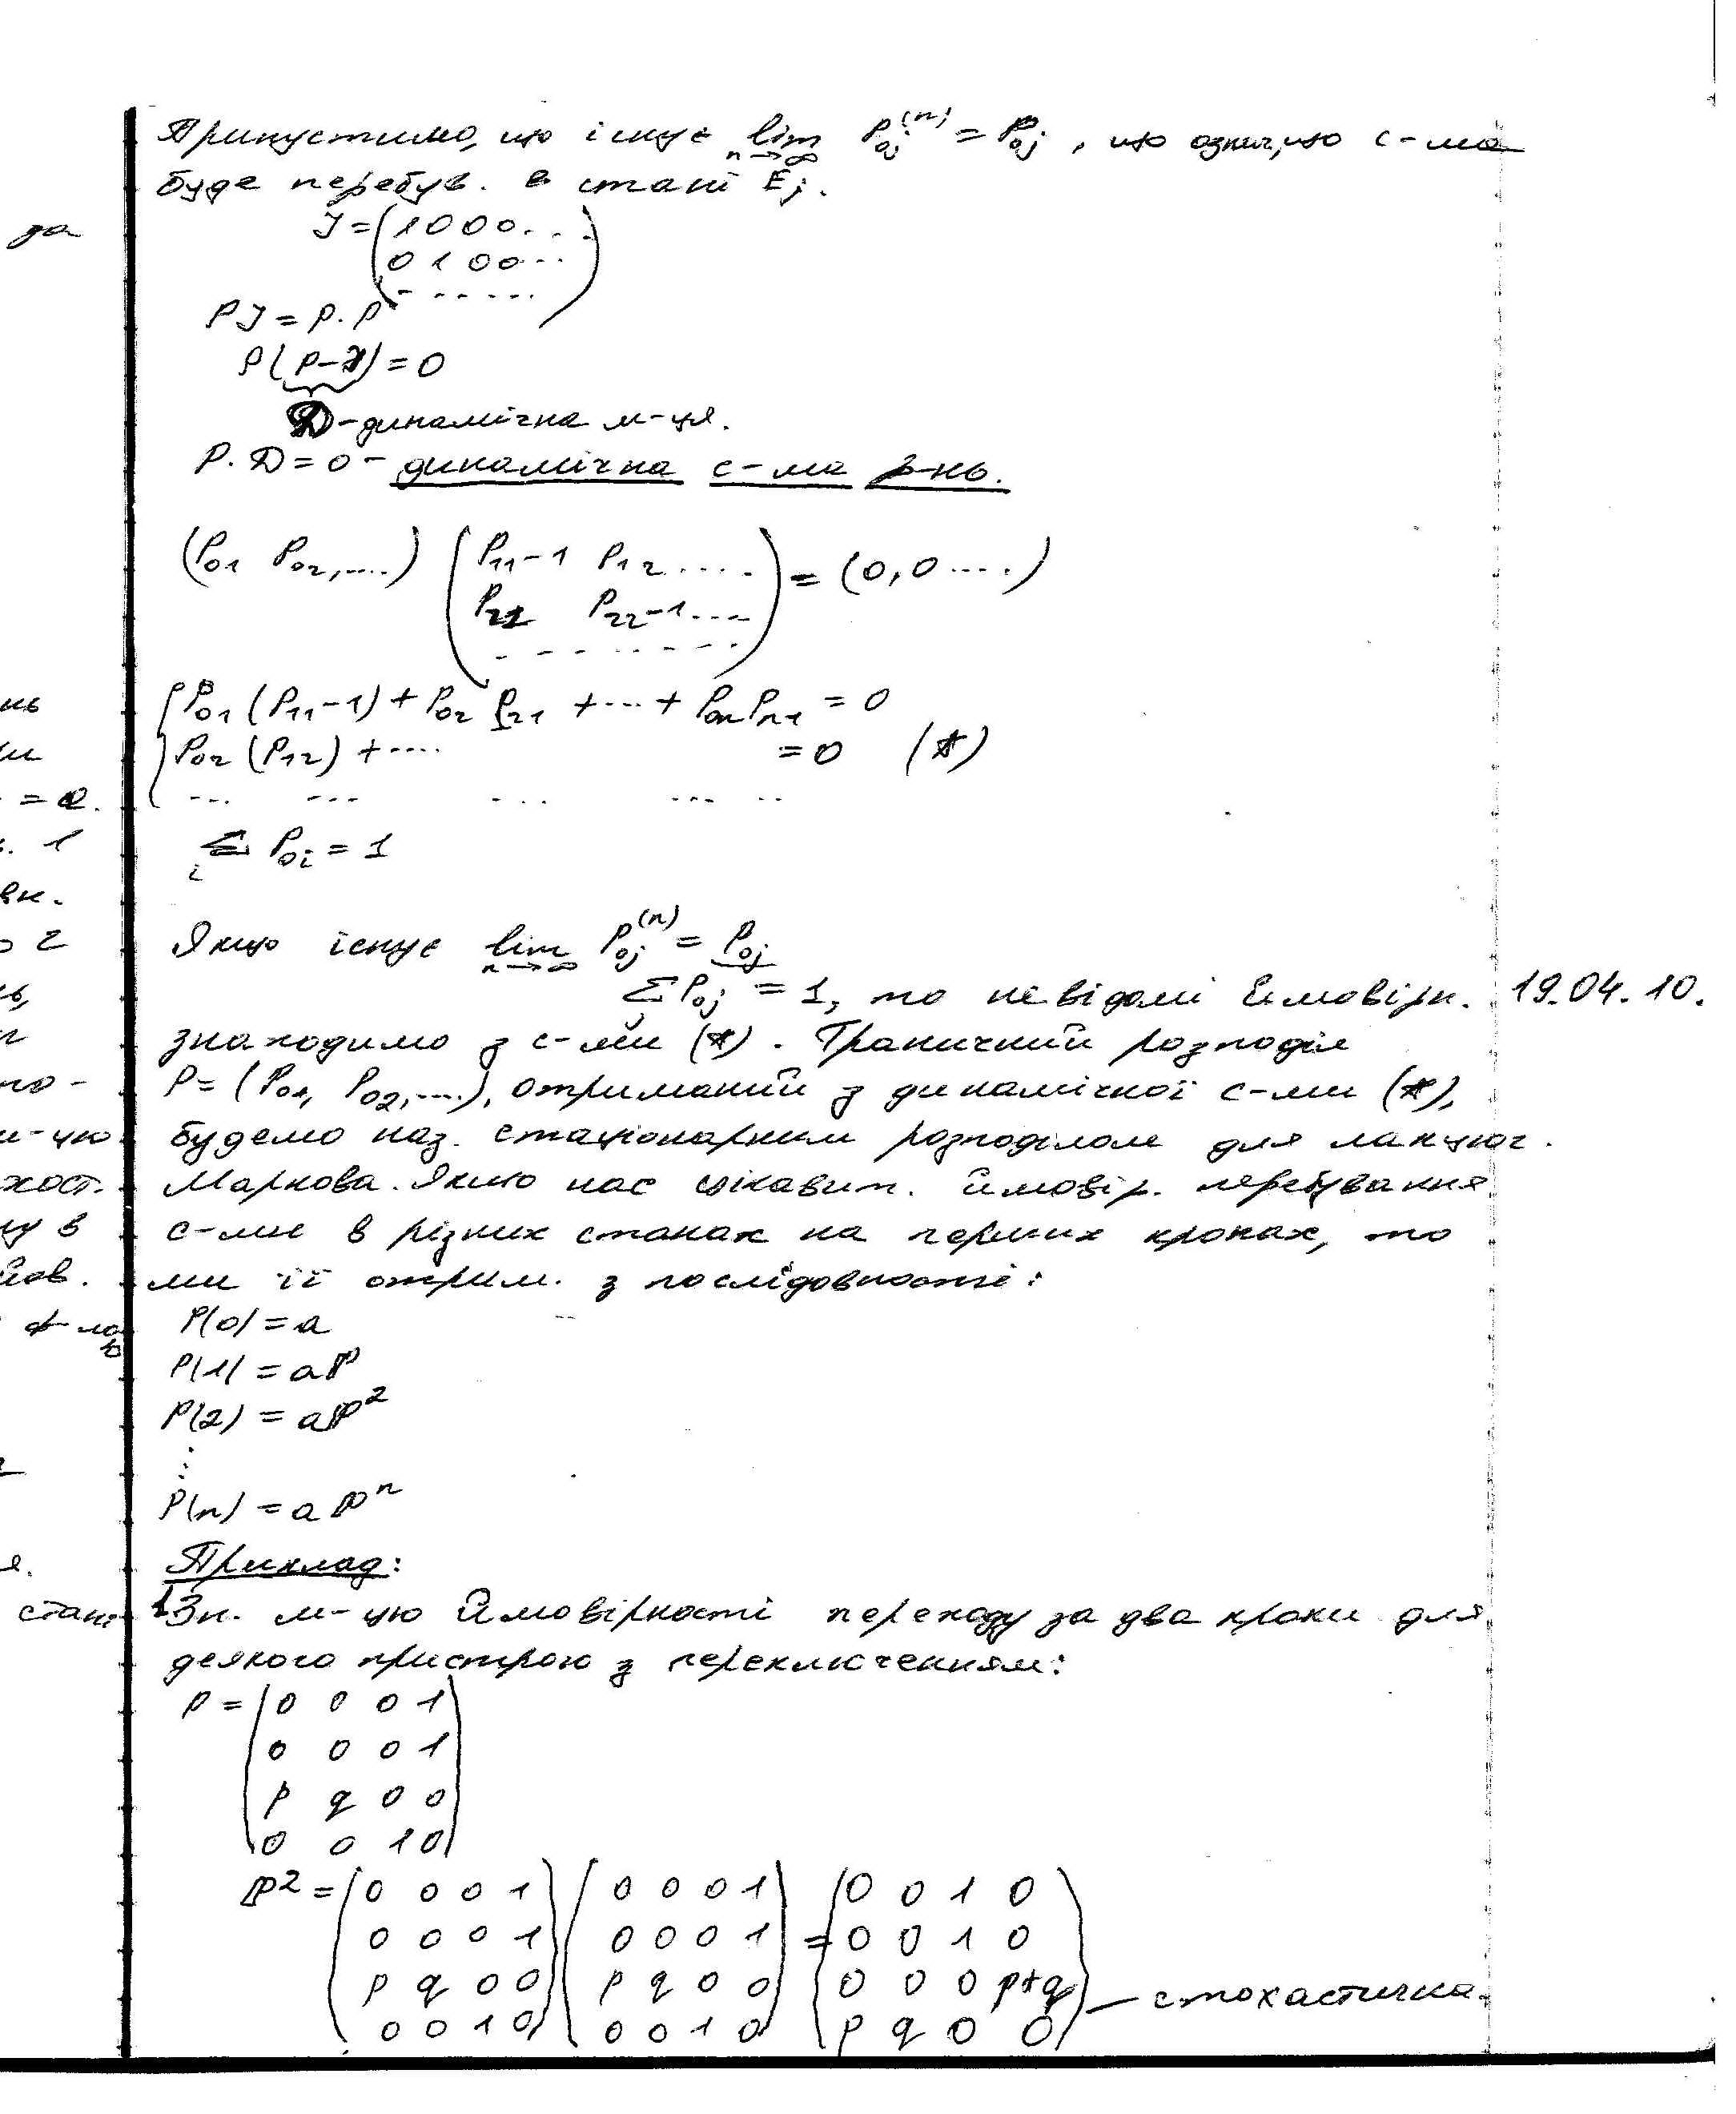 Припустимо, що існує lim n→∞ P₀ⱼ⁽ⁿ⁾ = P₀ⱼ, що означ, що с-ма
буде перебув. в стані Eⱼ.
да
J = (1 0 0 0 . . .
0 1 0 0 . . .
- - - . . . )
PJ = P · P
P(P-J) = 0
D - динамічна м-ця.
P · D = 0 - динамічна с-ма р-нь.
(P₀₁ P₀₂, ....) (P₁₁-1 P₁₂ ..... = (0, 0 ....)
P₂₁ P₂₂-1 ....
- - - - - - - )
P₀₁ (P₁₁-1) + P₀₂ P₂₁ + ... + P₀ₙ Pₙ₁ = 0
P₀₂ (P₁₂) + .... = 0 (*)
... ... ... ... ..
= 0.
Σᵢ P₀ᵢ = 1
Якщо існує lim n→∞ P₀ⱼ⁽ⁿ⁾ = P₀ⱼ
Σⱼ P₀ⱼ = 1, то невідомі ймовірн. 19.04.10.
знаходимо з с-ми (*). Граничний розподіл
P = (P₀₁, P₀₂, ....), отриманий з динамічної с-ми (*),
будемо наз. стаціонарним розподілом для ланцюг.
Маркова. Якщо нас цікавит. ймовір. перебування
с-ми в різних станах на перших кроках, то
ми її отрим. з послідовності:
P(0) = a
P(1) = aP
P(2) = aP²
⋮
P(n) = aPⁿ
Приклад:
1 Зн. м-цю ймовірності переходу за два кроки для
деякого пристрою з переключенням:
P = (0 0 0 1
0 0 0 1
p q 0 0
0 0 1 0)
P² = (0 0 0 1) (0 0 0 1) (0 0 1 0)
0 0 0 1 0 0 0 1 = 0 0 1 0
p q 0 0 p q 0 0 0 0 0 p+q — стохастична.
0 0 1 0 0 0 1 0 p q 0 0